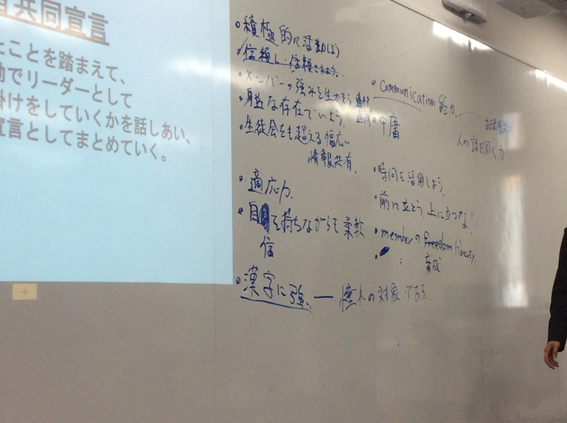 共同宣言
ことを踏まえて、
でリーダーとして
掛けをしていくかを話しあい、
宣言としてまとめていく。
・積極的に活動しよう
・信頼し信頼されよう。
・メンバーの強みを生かそう
・身近な存在でいよう。
・生徒会をも超える幅広い
情報共有。
・適応力
・自を持ちながらも柔軟
信
・漢字に強い ― 憧れの対象である
・communication 能力
人の話を聞く力
・中庸
・時間を活用しよう。
・前に立とう、上に立つな!
・memberの freedom liberty
育成